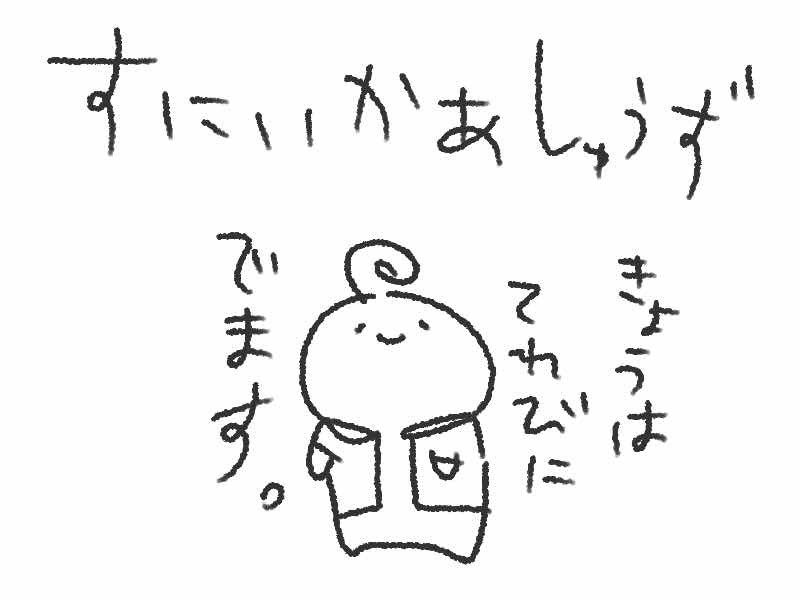 すにいかあしゅうず
きょうは
てれびに
でます。